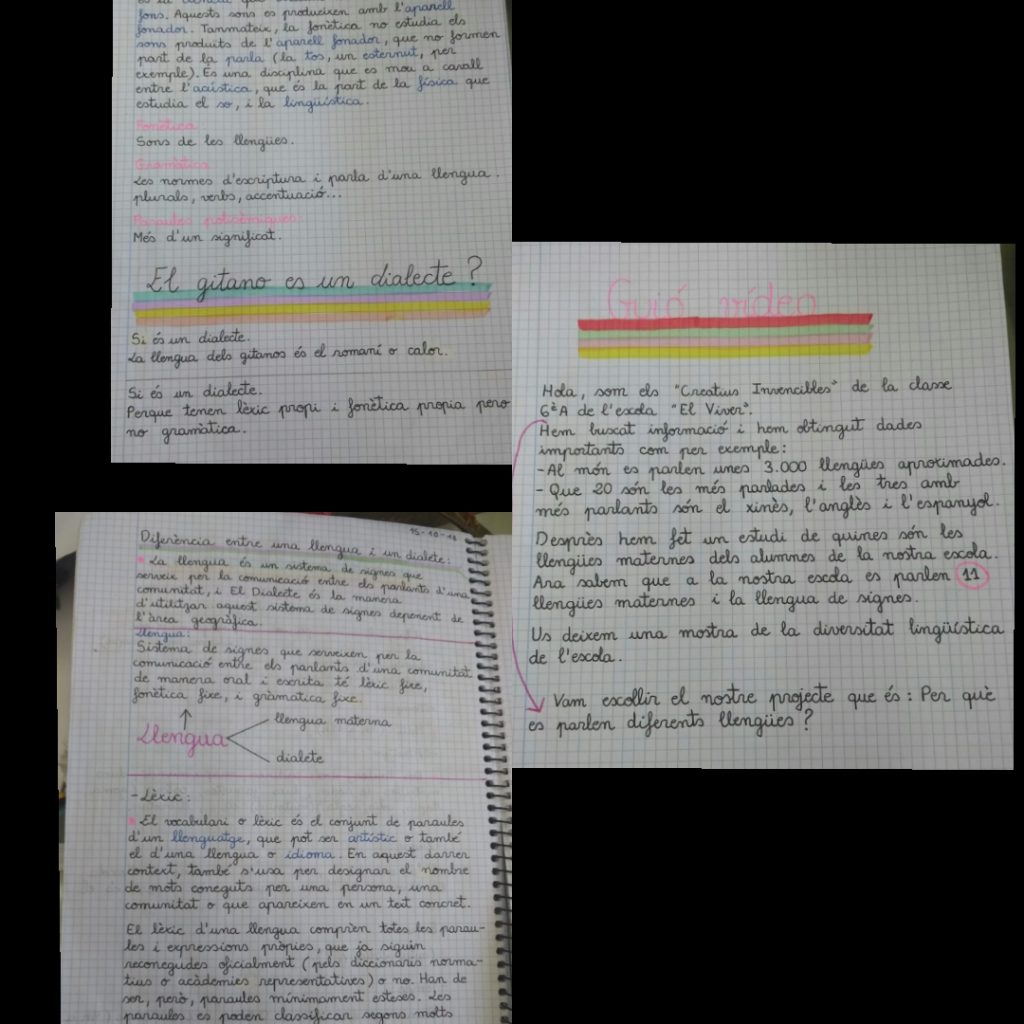 fons. Aquests sons es produeixen amb l'aparell
fonador. Tanmateix, la fonètica no estudia els
sons produïts de l'aparell fonador, que no formen
part de la parla (la tos, un esternut, per
exemple). És una disciplina que es mou a cavall
entre l'acústica, que és la part de la física que
estudia el so, i la lingüística.
Fonètica
Sons de les llengües.
Gramàtica
Les normes d'escriptura i parla d'una llengua.
plurals, verbs, accentuació...
Paraules polisèmiques:
Més d'un significat.
El gitano es un dialecte?
Si és un dialecte.
La llengua dels gitanos és el romaní o calor.
Si és un dialecte.
Perque tenen lèxic propi i fonètica propia pero
no gramàtica.
Guió vídeo
Hola, som els "Creatius Invencibles" de la classe
6èA de l'escola "El Viver".
Hem buscat informació i hem obtingut dades
importants com per exemple:
-Al món es parlen unes 3.000 llengües aproximades.
- Que 20 són les més parlades i les tres amb
més parlants són el xinès, l'anglès i l'espanyol.
Desprès hem fet un estudi de quines són les
llengües maternes dels alumnes de la nostra escola.
Ara sabem que a la nostra escola es parlen 11
llengües maternes i la llengua de signes.
Us deixem una mostra de la diversitat lingüística
de l'escola.
Vam escollir el nostre projecte que és: Per què
es parlen diferents llengües?
Diferència entre una llengua i un dialete:
La llengua és un sistema de signes que
serveix per la comunicació entre els parlants d'una
comunitat, i El Dialecte és la manera
d'utilitzar aquest sistema de signes depenent de
l'àrea geogràfica.
Llengua:
Sistema de signes que serveixen per la
comunicació entre els parlants d'una comunitat
de manera oral i escrita té lèxic fixe,
fonètica fixe, i gràmatica fixe.
Llengua
llengua materna
dialete
- Lèxic:
El vocabulari o lèxic és el conjunt de paraules
d'un llenguatge, que pot ser artístic o també
el d'una llengua o idioma. En aquest darrer
context, també s'usa per designar el nombre
de mots coneguts per una persona, una
comunitat o que apareixen en un text concret.
El lèxic d'una llengua comprèn totes les parau-
les i expressions pròpies, que ja siguin
reconegudes oficialment (pels diccionaris norma-
tius o acàdemies representatives) o no. Han de
ser, però, paraules mínimament esteses. Les
paraules es poden classificar segons molts